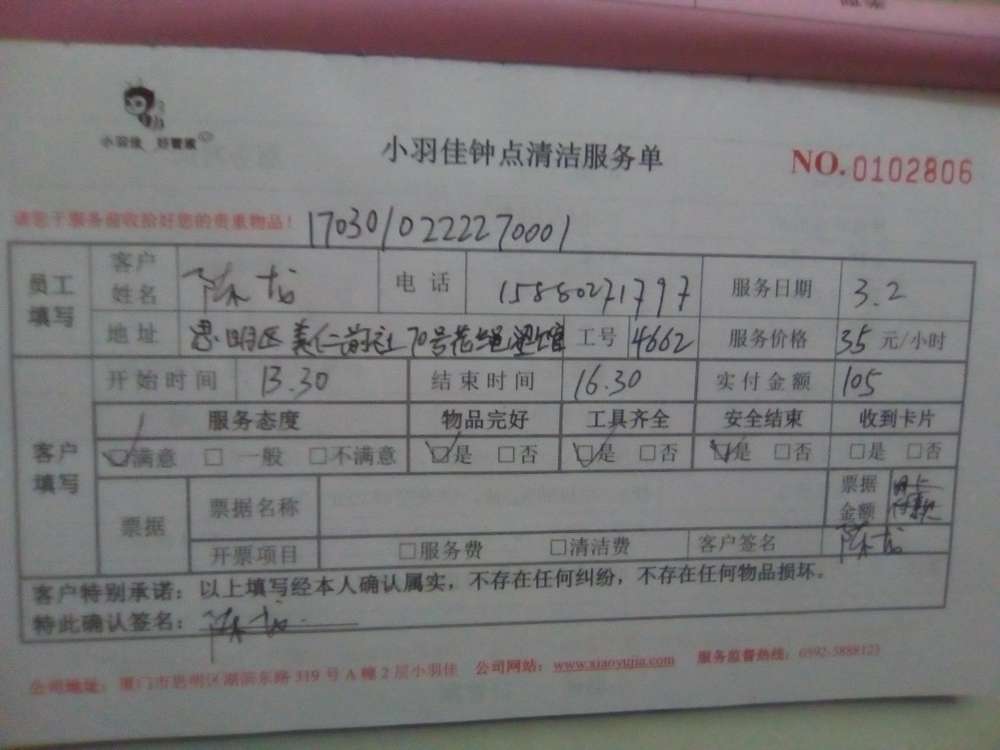 小羽佳 好管家
小羽佳钟点清洁服务单
NO.0102806
请您于服务前收拾好您的贵重物品！
170301022270001
员工填写
客户姓名 陈龙 电话 15880271797 服务日期 3.2
地址 思明区美仁前社70号 工号 4662 服务价格 35 元/小时
客户填写
开始时间 13.30 结束时间 16.30 实付金额 105
服务态度 物品完好 工具齐全 安全结束 收到卡片
☑满意 □一般 □不满意 ☑是 □否 ☑是 □否 ☑是 □否 □是 □否
票据 票据名称 票据金额 网上付款
开票项目 □服务费 □清洁费 客户签名 陈龙
客户特别承诺：以上填写经本人确认属实，不存在任何纠纷，不存在任何物品损坏。
特此确认签名：陈龙
公司地址：厦门市思明区湖滨东路319号A幢2层小羽佳 公司网站：www.xiaoyujia.com 服务监督热线：0592-5888123